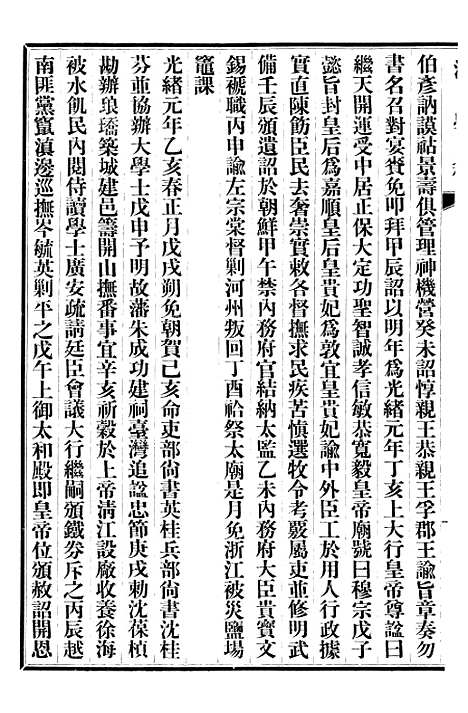 伯彥訥謨祜景壽俱管理神機營癸未詔惇親王恭親王孚郡王諭旨章奏勿
書名召對宴賚免叩拜甲辰詔以明年爲光緒元年丁亥上大行皇帝尊諡曰
繼天開運受中居正保大定功聖智誠孝信敏恭寬毅皇帝廟號曰穆宗戊子
懿旨封皇后爲嘉順皇后皇貴妃爲敦宜皇貴妃諭中外臣工於用人行政據
實直陳飭臣民去奢崇實敕各督撫求民疾苦愼選牧令考覈屬吏並修明武
備壬辰頒遺詔於朝鮮甲午禁內務府官結納太監乙未內務府大臣貴寶文
錫褫職丙申諭左宗棠督剿河州叛回丁酉祫祭太廟是月免浙江被災鹽場
竈課
光緒元年乙亥春正月戊戌朔免朝賀己亥命吏部尙書英桂兵部尙書沈桂
芬並協辦大學士戊申予明故藩朱成功建祠臺灣追諡忠節庚戌勅沈葆楨
勘辦琅𤩝築城建邑籌開山撫番事宜辛亥祈穀於上帝淸江設廠收養徐海
被水飢民內閣侍讀學士廣安疏請廷臣會議大行繼嗣頒鐵券斥之丙辰越
南匪黨竄滇邊巡撫岑毓英剿平之戊午上御太和殿卽皇帝位頒赦詔開恩